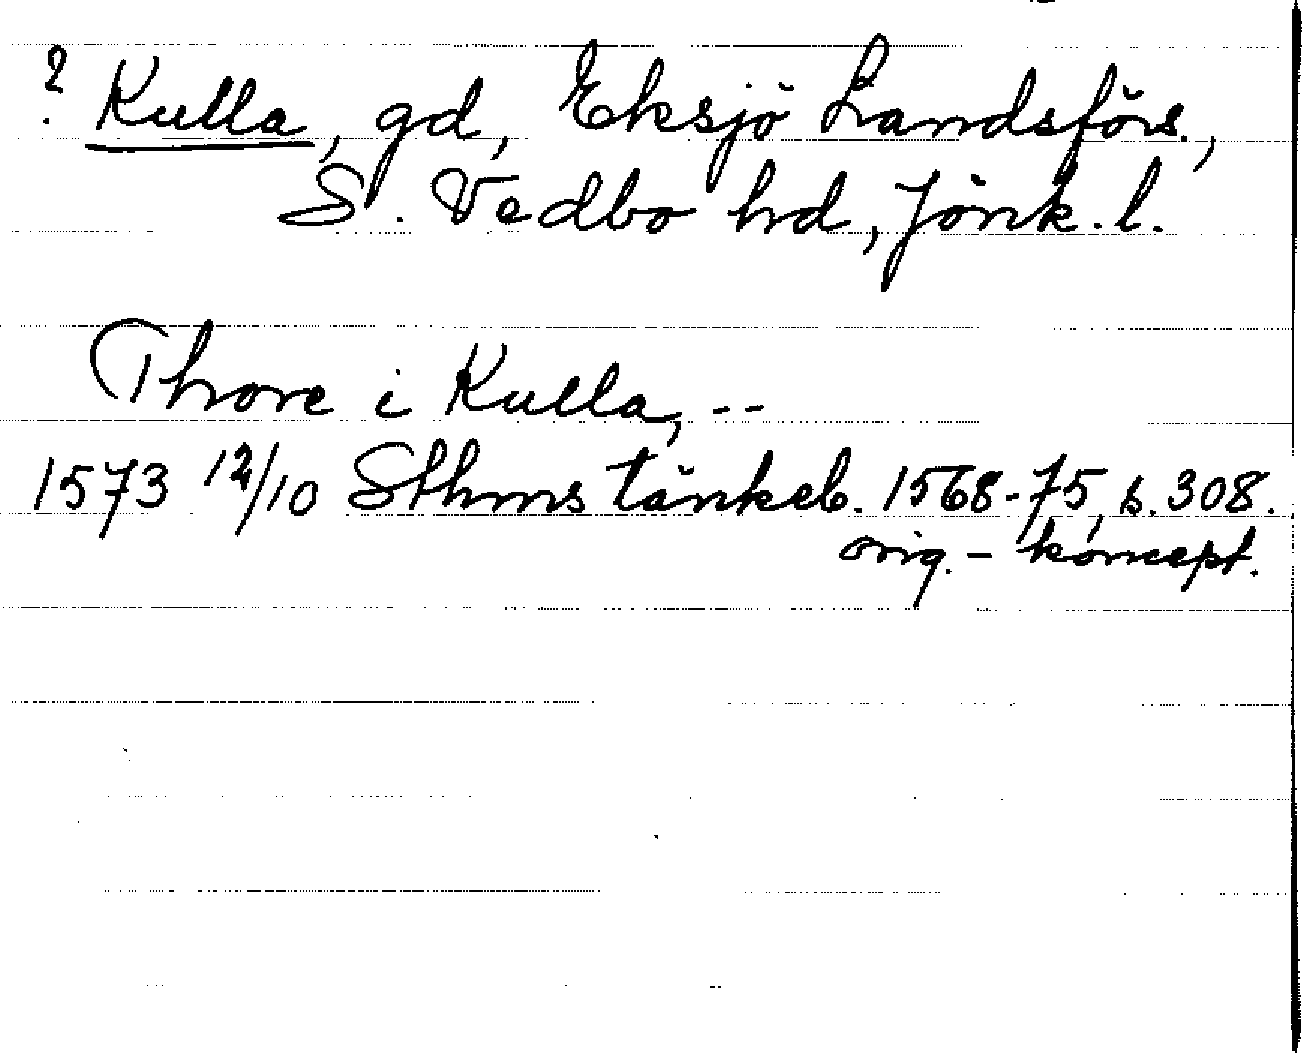 ? Kulla, gd, Eksjö Landsförs.,
S. Vedbo hrd, Jönk. l.
Thore i Kulla, --
1573 12/10 Sthms tänkeb. 1568-75, s. 308.
orig. - koncept.